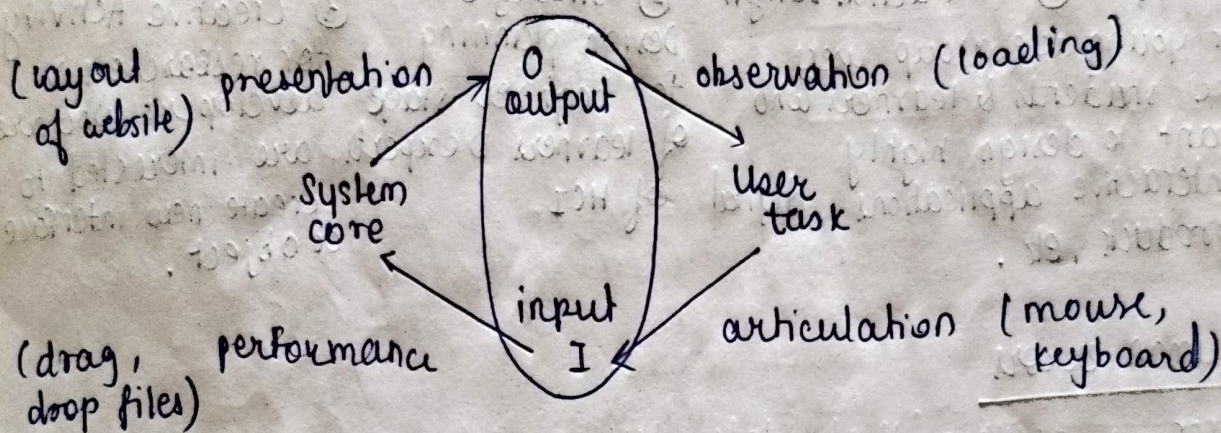 (layout
of website)
presentation
O
output
observation (loading)
System
core
User
task
input
I
(drag,
drop files)
performance
articulation
(mouse,
keyboard)